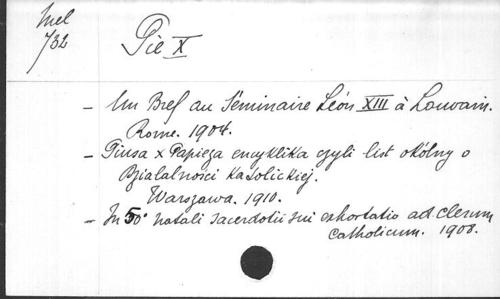 Mel
732
Pie X
- Un Bref au Séminaire Léon XIII à Louvain.
Rome. 1904.
- Piusa X Papieza encyklika czyli list okólny o
Dzialalnosci Katolickiej.
Warszawa. 1910.
- In 50° natali sacerdotii sui exhortatio ad clerum
catholicum. 1908.